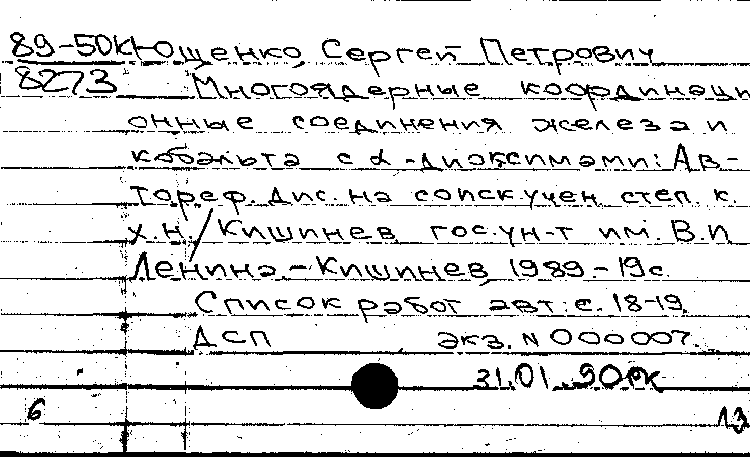 89-50К Ющенко, Сергей Петрович
8273 Многоядерные координаци
онные соединения железа и
кобальта с α-диоксимами: Ав-
тореф. дис. на соиск. учен. степ. к.
х.н. / Кишинев. гос. ун-т им. В.И
Ленина. - Кишинев, 1989. - 19 с.
Список работ авт.: с. 18-19.
ДСП экз. N 000007.
31.01.90
6